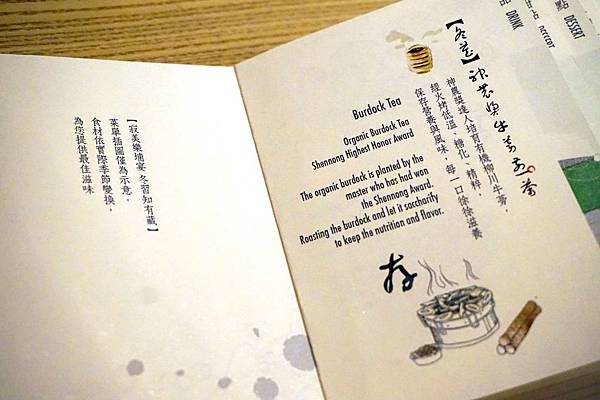 【寂美樂埔宴 冬習知有藏】
菜單插圖僅為示意，
食材依實際季節變換，
為您提供最佳滋味
Burdock Tea
Organic Burdock Tea
Shennong Highest Honor Award
The organic burdock is planted by the
master who has had won
the Shennong Award.
Roasting the burdock and let it saccharify
to keep the nutrition and flavor.
【冬藏】神農獎牛蒡茶
神農獎達人培育有機柳川牛蒡，
經火烤低溫、糖化、精粹，
保存營養與風味，每一口徐徐滋養
存
點 DESSERT
品 DRINK
DESSERT